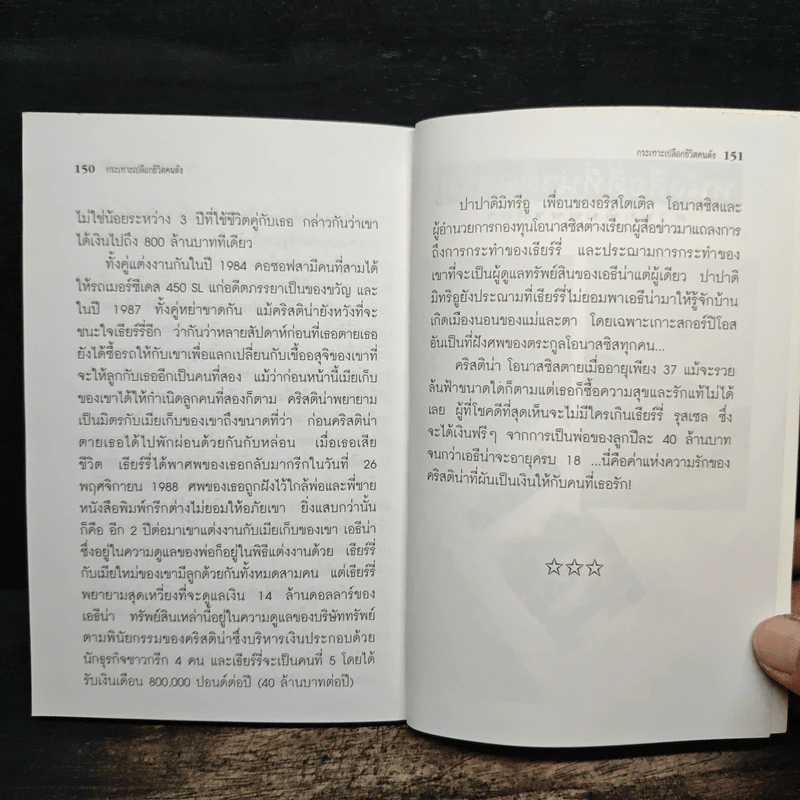 150 กระเทาะเปลือกชีวิตคนดัง
ไม่ใช่น้อยระหว่าง 3 ปีที่ใช้ชีวิตคู่กับเธอ กล่าวกันว่าเขา
ได้เงินไปถึง 800 ล้านบาททีเดียว
ทั้งคู่แต่งงานกันในปี 1984 คอซอฟสามีคนที่สามได้
ให้รถเมอร์ซีเดส 450 SL แก่อดีตภรรยาเป็นของขวัญ และ
ในปี 1987 ทั้งคู่หย่าขาดกัน แม้คริสติน่ายังหวังที่จะ
ชนะใจเธียร์รี่อีก ว่ากันว่าหลายสัปดาห์ก่อนที่เธอตายเธอ
ยังได้ซื้อรถให้กับเขาเพื่อแลกเปลี่ยนกับเชื้ออสุจิของเขาที่
จะให้ลูกกับเธออีกเป็นคนที่สอง แม้ว่าก่อนหน้านี้เมียเก็บ
ของเขาได้ให้กำเนิดลูกคนที่สองก็ตาม คริสติน่าพยายาม
เป็นมิตรกับเมียเก็บของเขาถึงขนาดที่ว่า ก่อนคริสติน่า
ตายเธอได้ไปพักผ่อนด้วยกันกับหล่อน เมื่อเธอเสีย
ชีวิต เธียร์รี่ได้พาศพของเธอกลับมากรีกในวันที่ 26
พฤศจิกายน 1988 ศพของเธอถูกฝังไว้ใกล้พ่อและพี่ชาย
หนังสือพิมพ์กรีกต่างไม่ยอมให้อภัยเขา ยิ่งแสบกว่านั้น
ก็คือ อีก 2 ปีต่อมาเขาแต่งงานกับเมียเก็บของเขา เอธีน่า
ซึ่งอยู่ในความดูแลของพ่อก็อยู่ในพิธีแต่งงานด้วย เธียร์รี่
กับเมียใหม่ของเขามีลูกด้วยกันทั้งหมดสามคน แต่เธียร์รี่
พยายามสุดเหวี่ยงที่จะดูแลเงิน 14 ล้านดอลลาร์ของ
เอธีน่า ทรัพย์สินเหล่านี้อยู่ในความดูแลของบริษัททรัพย์
ตามพินัยกรรมของคริสติน่าซึ่งบริหารเงินประกอบด้วย
นักธุรกิจชาวกรีก 4 คน และเธียร์รี่จะเป็นคนที่ 5 โดยได้
รับเงินเดือน 800,000 ปอนด์ต่อปี (40 ล้านบาทต่อปี)
กระเทาะเปลือกชีวิตคนดัง 151
ปาปาดิมิทรีอู เพื่อนของอริสโตเติล โอนาสซิสและ
ผู้อำนวยการกองทุนโอนาสซิสต่างเรียกผู้สื่อข่าวมาแถลงการ
ถึงการกระทำของเธียร์รี่ และประณามการกระทำของ
เขาที่จะเป็นผู้ดูแลทรัพย์สินของเอธีน่าแต่ผู้เดียว ปาปาดิ
มิทรีอูยังประณามที่เธียร์รี่ไม่ยอมพาเอธีน่ามาให้รู้จักบ้าน
เกิดเมืองนอนของแม่และตา โดยเฉพาะเกาะสกอร์ปิโอส
อันเป็นที่ฝังศพของตระกูลโอนาสซิสทุกคน...
คริสติน่า โอนาสซิสตายเมื่ออายุเพียง 37 แม้จะรวย
ล้นฟ้าขนาดใดก็ตามแต่เธอก็ซื้อความสุขและรักแท้ไม่ได้
เลย ผู้ที่โชคดีที่สุดเห็นจะไม่มีใครเกินเธียร์รี่ รุสเซล ซึ่ง
จะได้เงินฟรีๆ จากการเป็นพ่อของลูกปีละ 40 ล้านบาท
จนกว่าเอธีน่าจะอายุครบ 18 ...นี่คือค่าแห่งความรักของ
คริสติน่าที่ผันเป็นเงินให้กับคนที่เธอรัก!